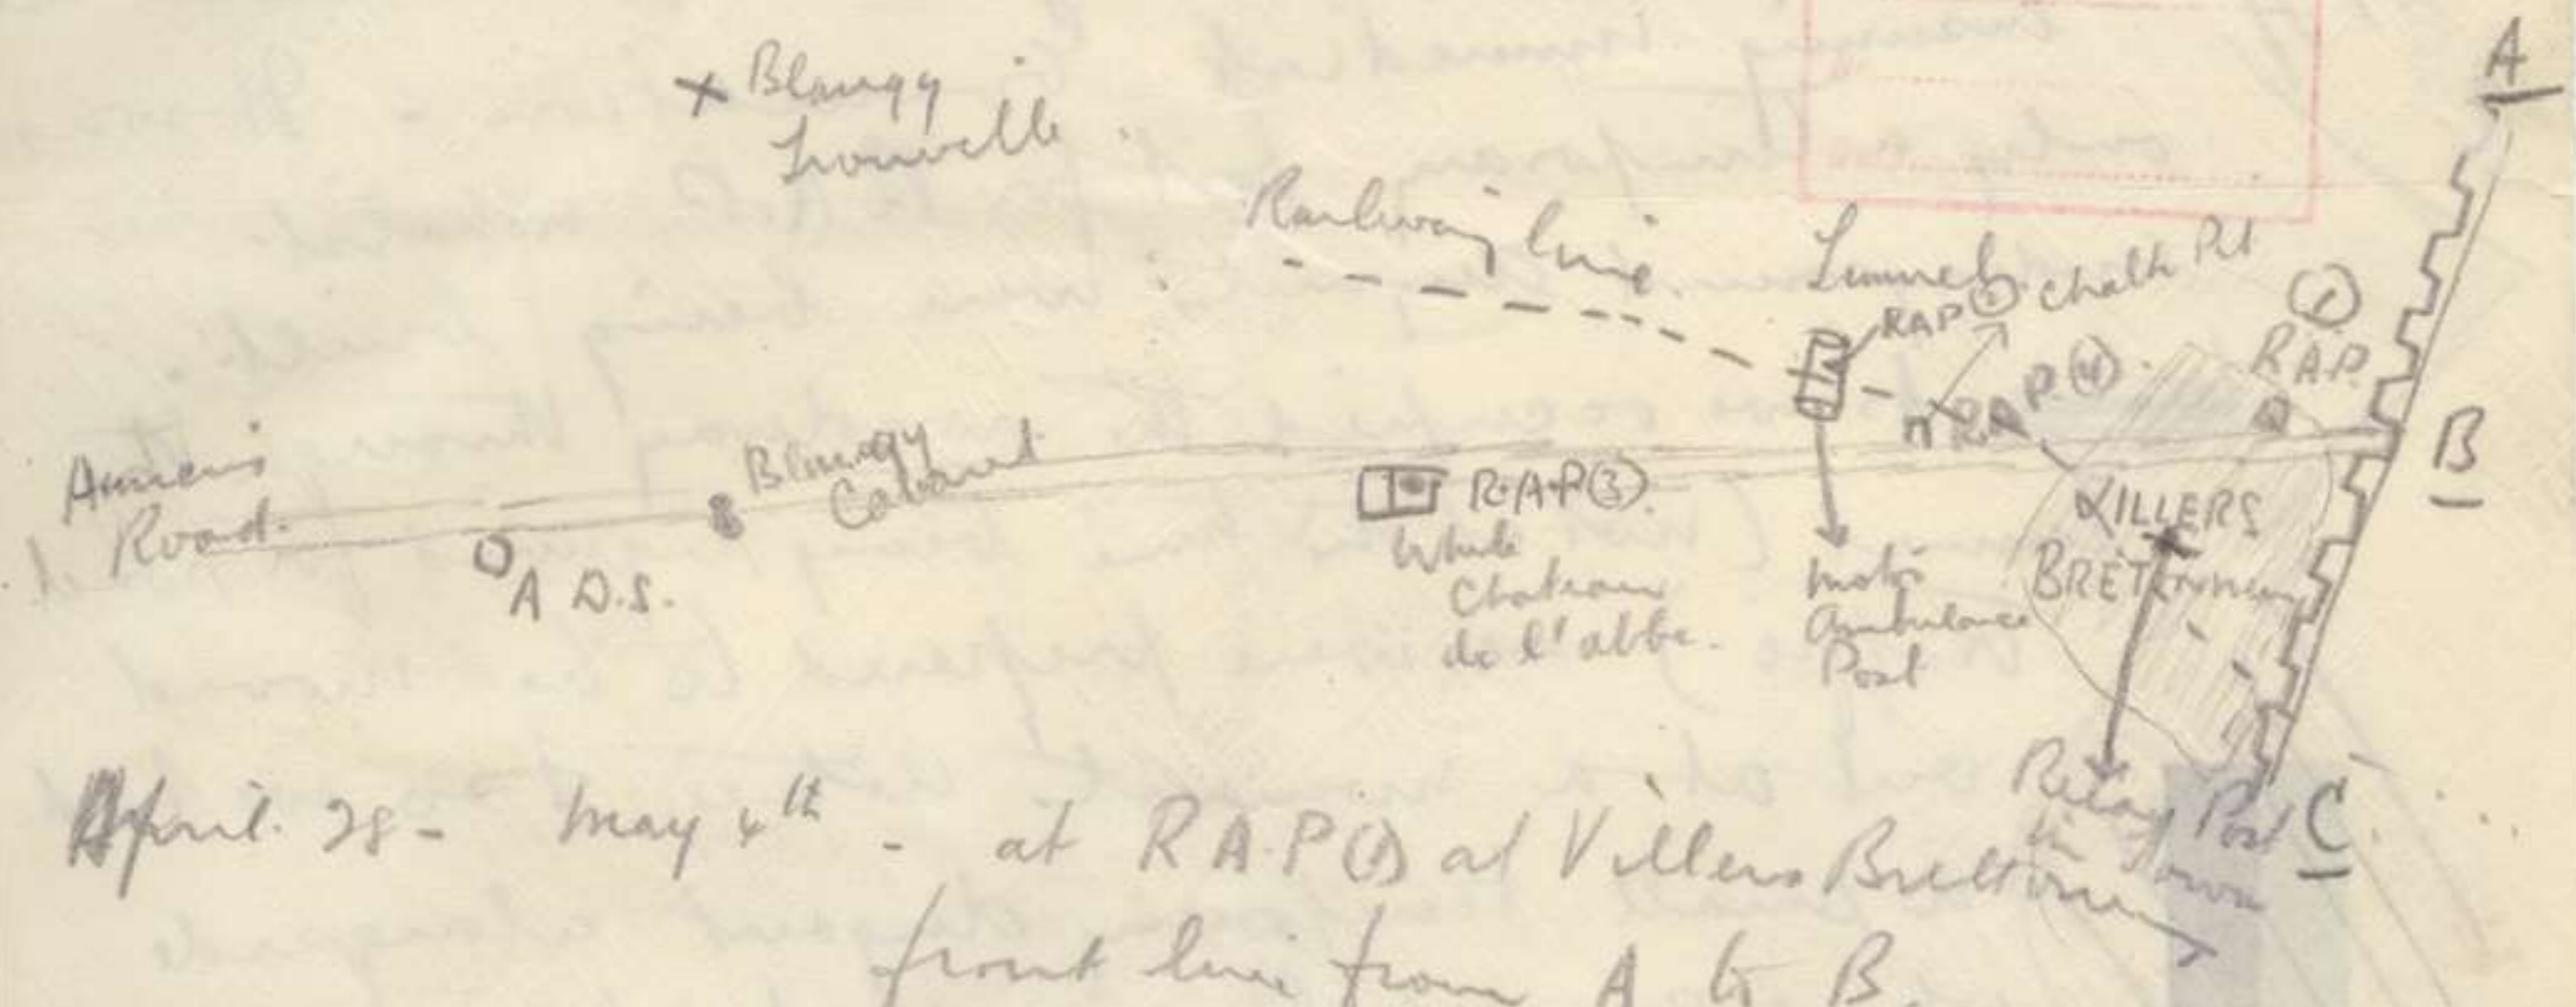 A
x Blangy
Tronville
Railway line
Tunnel
RAP (2) Chalk Pit
(1)
R.A.P.
R.A.P. (4)
B
Amiens
Road.
Blangy
Cabaret
A.D.S.
R.A.P (3).
White
Chateau
de l'abbe.
Motor
Ambulance
Post
VILLERS
BRETONNEUX
Relay Post
in
town
C
April 28 - May 4th - at R.A.P (1) at Villers Bretton
front line from A to B.